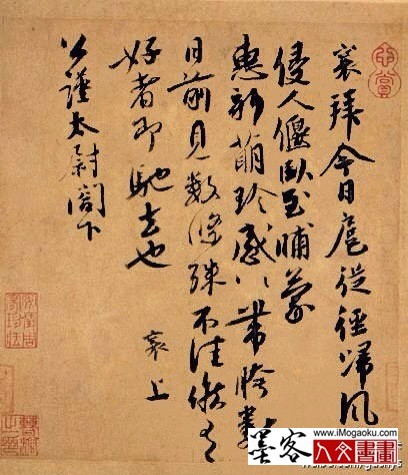 襄拜今日扈從徑歸風
侵人偃臥至晡蒙
惠新萌珍感〻帶胯數
日前見數條殊不佳候有
好者即馳去也
襄上
公謹太尉閣下
心賞
www.iMogaoku.com
墨客
人文書畫